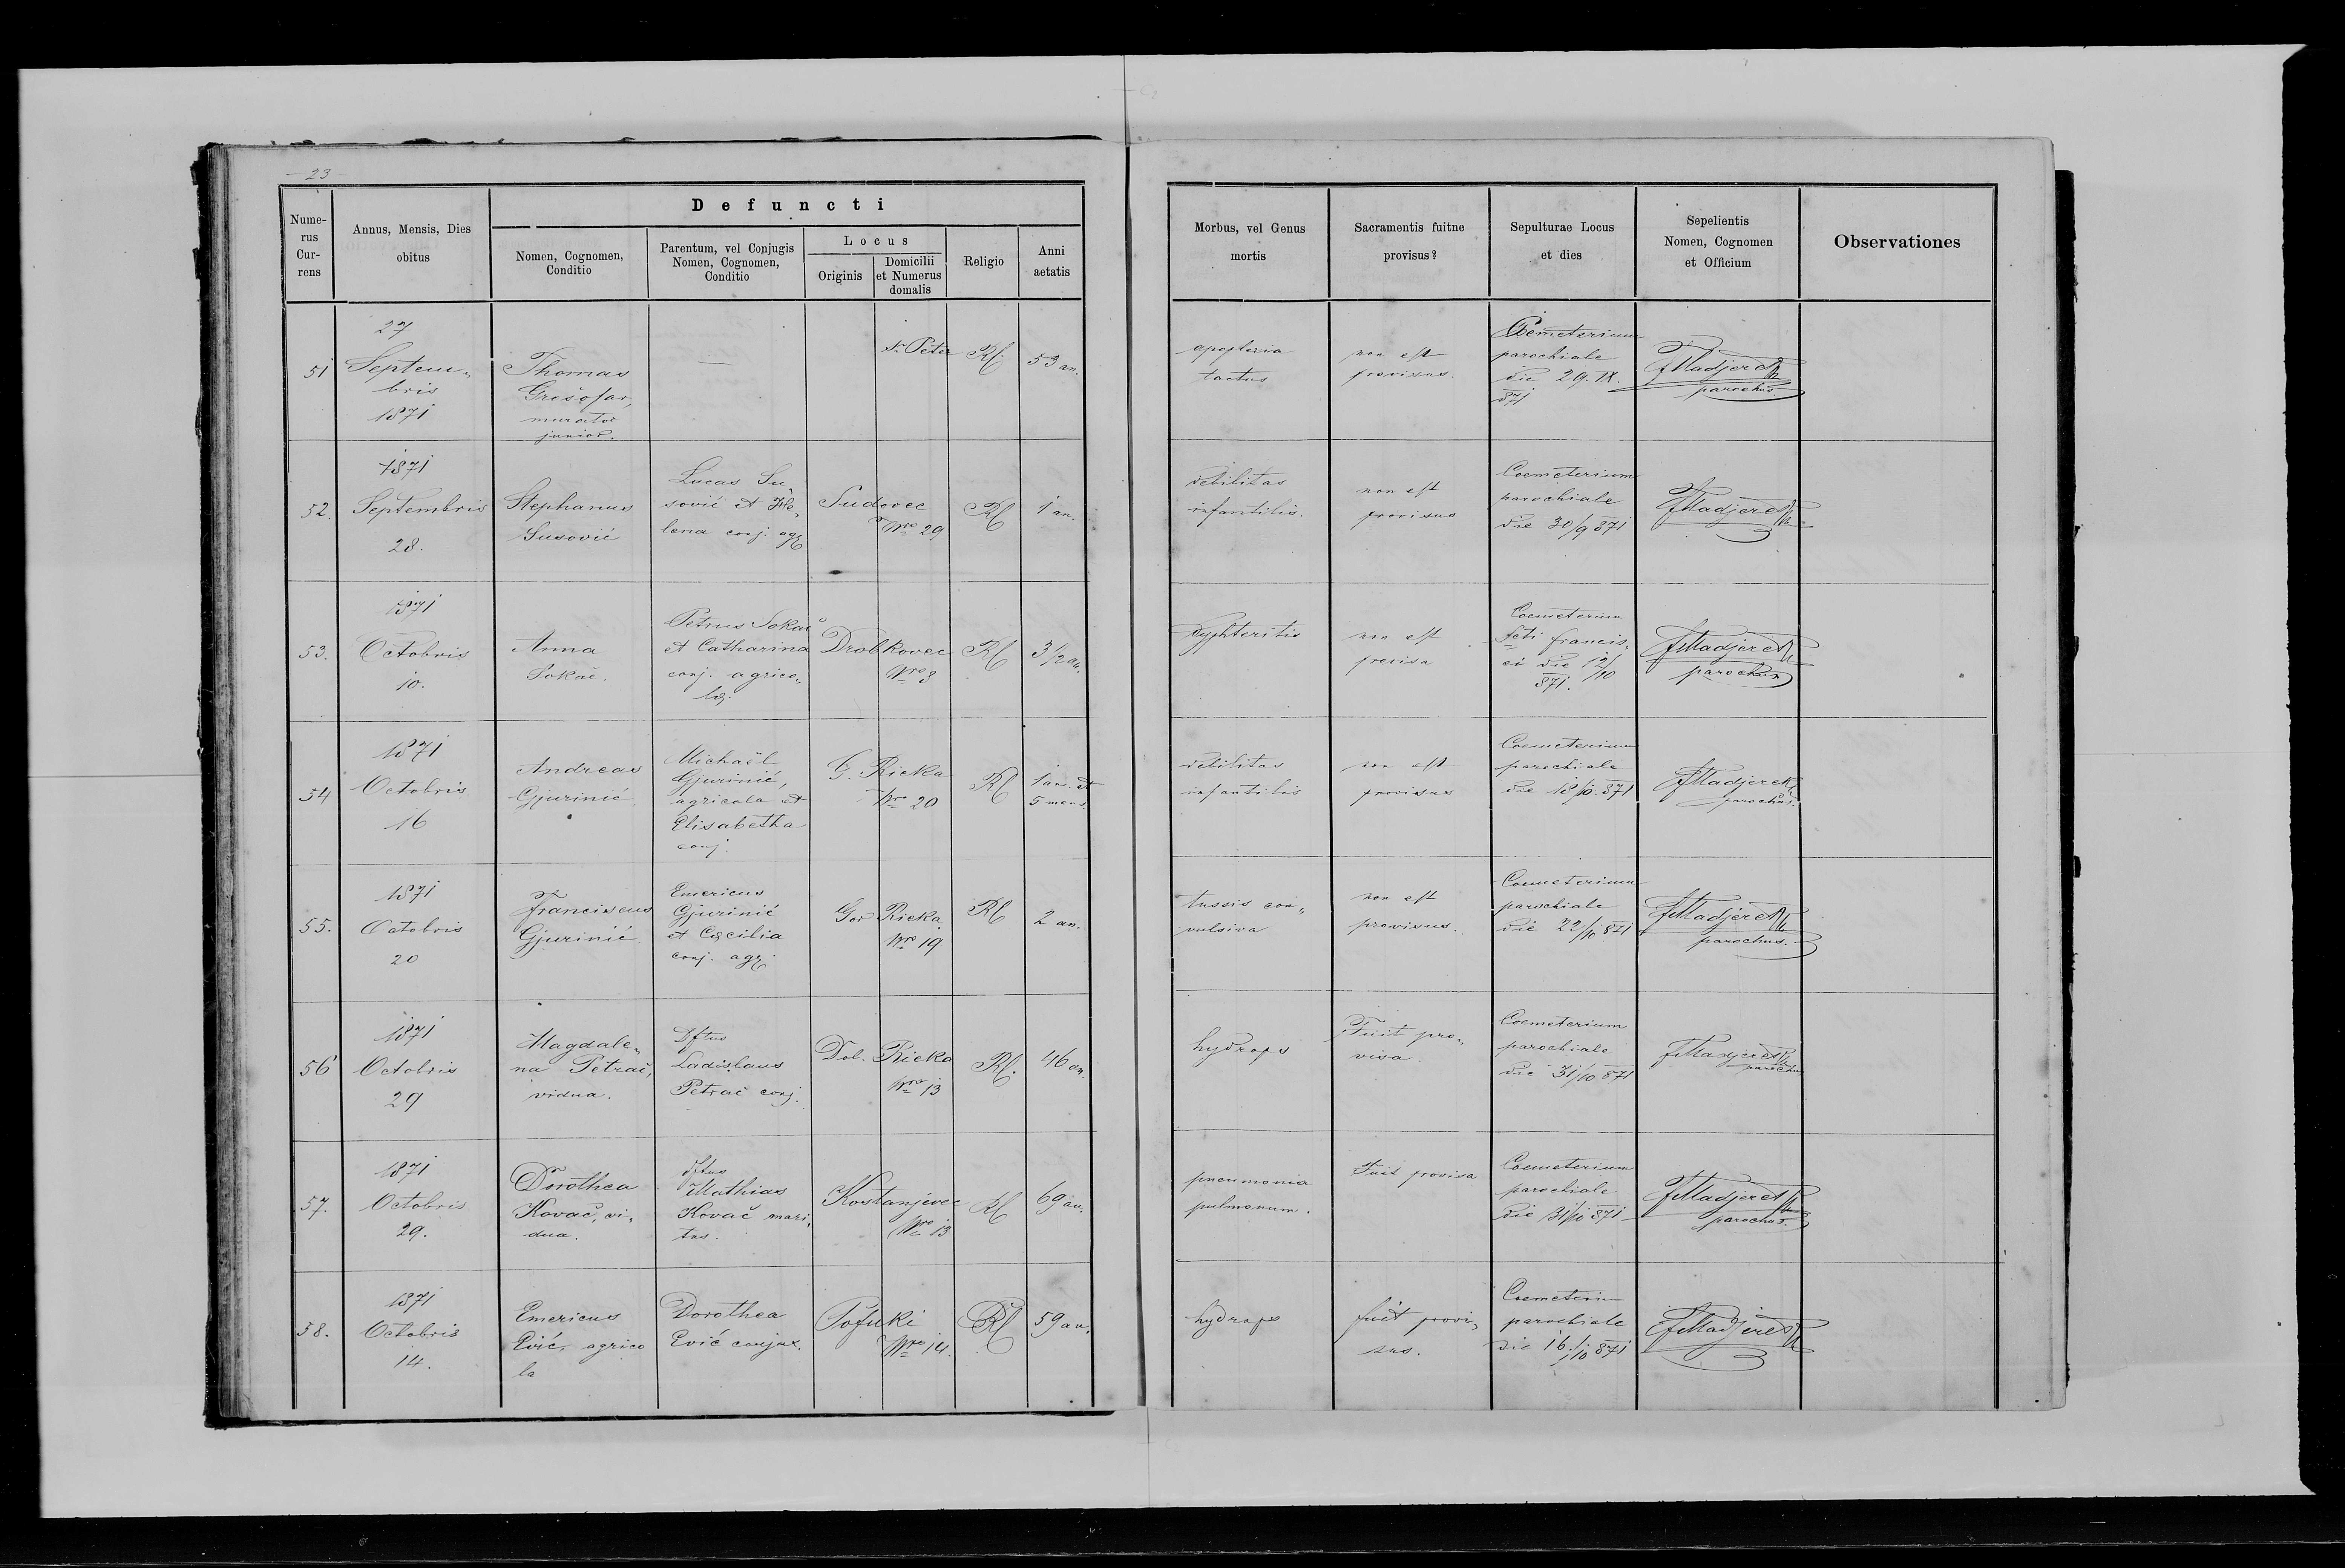 - 23 -
Defuncti
Nume-
rus
Cur-
rens
Annus, Mensis, Dies
obitus
Nomen, Cognomen,
Conditio
Parentum, vel Conjugis
Nomen, Cognomen,
Conditio
Locus
Originis
Domicilii
et Numerus
domalis
Religio
Anni
aetatis
Morbus, vel Genus
mortis
Sacramentis fuitne
provisus?
Sepulturae Locus
et dies
Sepelientis
Nomen, Cognomen
et Officium
Observationes
51
27
Septem„
bris
1871
Thomas
murator
junior.
—
St Peter
RC.
53 an.
tactus
non est
provisus.
Coemeterium
parochiale
die 29. IX.
871
FMadjerek
parochus.
52.
1871
Septembris
28.
Stephanus
Susović
Lucas Su„
sović et He„
lena conj. agr
Sudovec
Nro 29
RC
1 an.
debilitas
infantilis.
non est
provisus
Coemeterium
parochiale
die 30/9 871
FMadjerek
53.
1871
Octobris
10.
Anna
Sokač.
Petrus Sokač
et Catharina
conj. agrico„
læ.
Drobkovec
Nro 3
RC
3 1/2 an.
Dyphteritis
non est
provisa
Coemeterium
Scti francis„
ci die 12/10
871.
FMadjerek
parochus
54
1871
Octobris
16
Andreas
Gjurinić
Michaël
Gjurinić,
agricola et
Elisabetha
conj.
G. Rieka
Nro 20
RC
1 an. et
5 mens.
debilitas
infantilis
non est
provisus
Coemeterium
parochiale
die 18/10. 871
FMadjerek
parochus.
55.
1871
Octobris
20
Franciscus
Gjurinić
Emericus
Gjurinić
et Cæcilia
conj. agr.
Gor Rieka
Nro 19
RC
2 an.
tussis con„
vulsiva
non est
provisus.
Coemeterium
parochiale
die 22/10 871
FMadjerek
parochus.
56
1871
Octobris
29
Magdale„
na Petrač,
vidua.
Dftus
Ladislaus
Petrač conj.
Dol. Rieka
Nro 13
RC.
46 an.
hydrops
Fuit pro„
visa.
Coemeterium
parochiale
die 31/10 871
FMadjerek
parochus
57.
1871
Octobris
29.
Dorothea
Kovač, vi„
dua.
dftus
Mathias
Kovač mari„
tus.
Kostanjevec
Nro 13
RC
69 an.
pneumonia
pulmonum.
Fuit provisa
Coemeterium
parochiale
die 31/10 871
FMadjerek
parochus.
58.
1871
Octobris
14.
Emericus
Ević, agrico
la
Dorothea
Ević conjux.
Pofuki
Nro 14.
RC
59 an.
hydrops
fuit provi„
sus.
Coemeterium
parochiale
die 16./10 871
FMadjerek